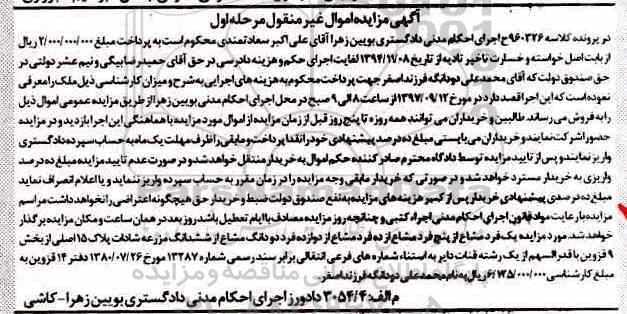 آگهی مزایده اموال غیر منقول مرحله اول
در پرونده کلاسه ۹۶۰۳۲۶ ح اجرای احکام مدنی دادگستری بویین زهرا آقای علی اکبر سعادتمندی محکوم است به پرداخت مبلغ ۲/۰۰۰/۰۰۰/۰۰۰ ریال
از بابت اصل خواسته و خسارت تاخیر تادیه از تاریخ ۱۳۹۴/۱۲/۰۸ لغایت اجرای حکم و هزینه دادرسی در حق آقای حمیدرضا بیگی و نیم عشر دولتی در
حق صندوق دولت که آقای محمدعلی دودانگه فرزند اصغر جهت پرداخت محکوم به هزینه های اجرایی به شرح و میزان کارشناسی ذیل ملک را معرفی
نموده است که این اجرا قصد دارد در مورخ ۱۳۹۷/۰۹/۱۲ از ساعت ۸ الی ۹ صبح در محل اجرای احکام مدنی بویین زهرا از طریق مزایده عمومی اموال ذیل
را به فروش می رساند. طالبین و خریداران می توانند همه روزه تا پنج روز قبل از زمان مزایده از اموال مورد مزایده با هماهنگی این اجرا بازدید و در مزایده
حضور/شرکت نمایند و خریداران می بایستی مبلغ ده درصد پیشنهادی خود را نقدا پرداخت و مابقی را ظرف مهلت یک ماه به حساب سپرده دادگستری
واریز نمایند و پس از تایید مزایده توسط دادگاه محترم صادر کننده حکم اموال به خریدار منتقل خواهد شد و در صورت عدم تایید مزایده مبلغ ده درصد
واریزی به خریدار مسترد خواهد شد و در صورتی که خریدار مابقی وجه مزایده را در زمان مقرر به حساب سپرده واریز ننماید و یا اعلام انصراف نماید
مبلغ ده درصدی پیشنهادی خریدار پس از کسر هزینه های مزایده به نفع صندوق دولت ضبط و خریدار حق هیچگونه اعتراضی را نخواهد داشت مراسم
مزایده با رعایت مواد قانون اجرای احکام مدنی اجراء کتبی و چنانچه روز مزایده مصادف با ایام تعطیل باشد روز بعد در همان ساعت و مکان مزایده برگذار
خواهد شد. مورد مزایده یک فرد مشاع از پنج فرد مشاع از ده فرد مشاع از دوازده فرد دو دانگ مشاع از ششدانگ مزرعه شادات پلاک ۱۵ اصلی از بخش
۹ قزوین با قدرالسهم از یک رشته قنات دایر به استثناء شماره های فرعی انتقالی برابر سند رسمی شماره ۱۳۲۸۷ مورخ ۱۳۸۰/۰۷/۲۶ دفتر ۱۴ قزوین به
مبلغ کارشناسی ۶/۱۲۵/۰۰۰/۰۰۰ ریال به نام محمدعلی دودانگه فرزند اصغر.
م الف: ۳۰۵۴/۴ دادورز اجرای احکام مدنی دادگستری بویین زهرا - کاشی